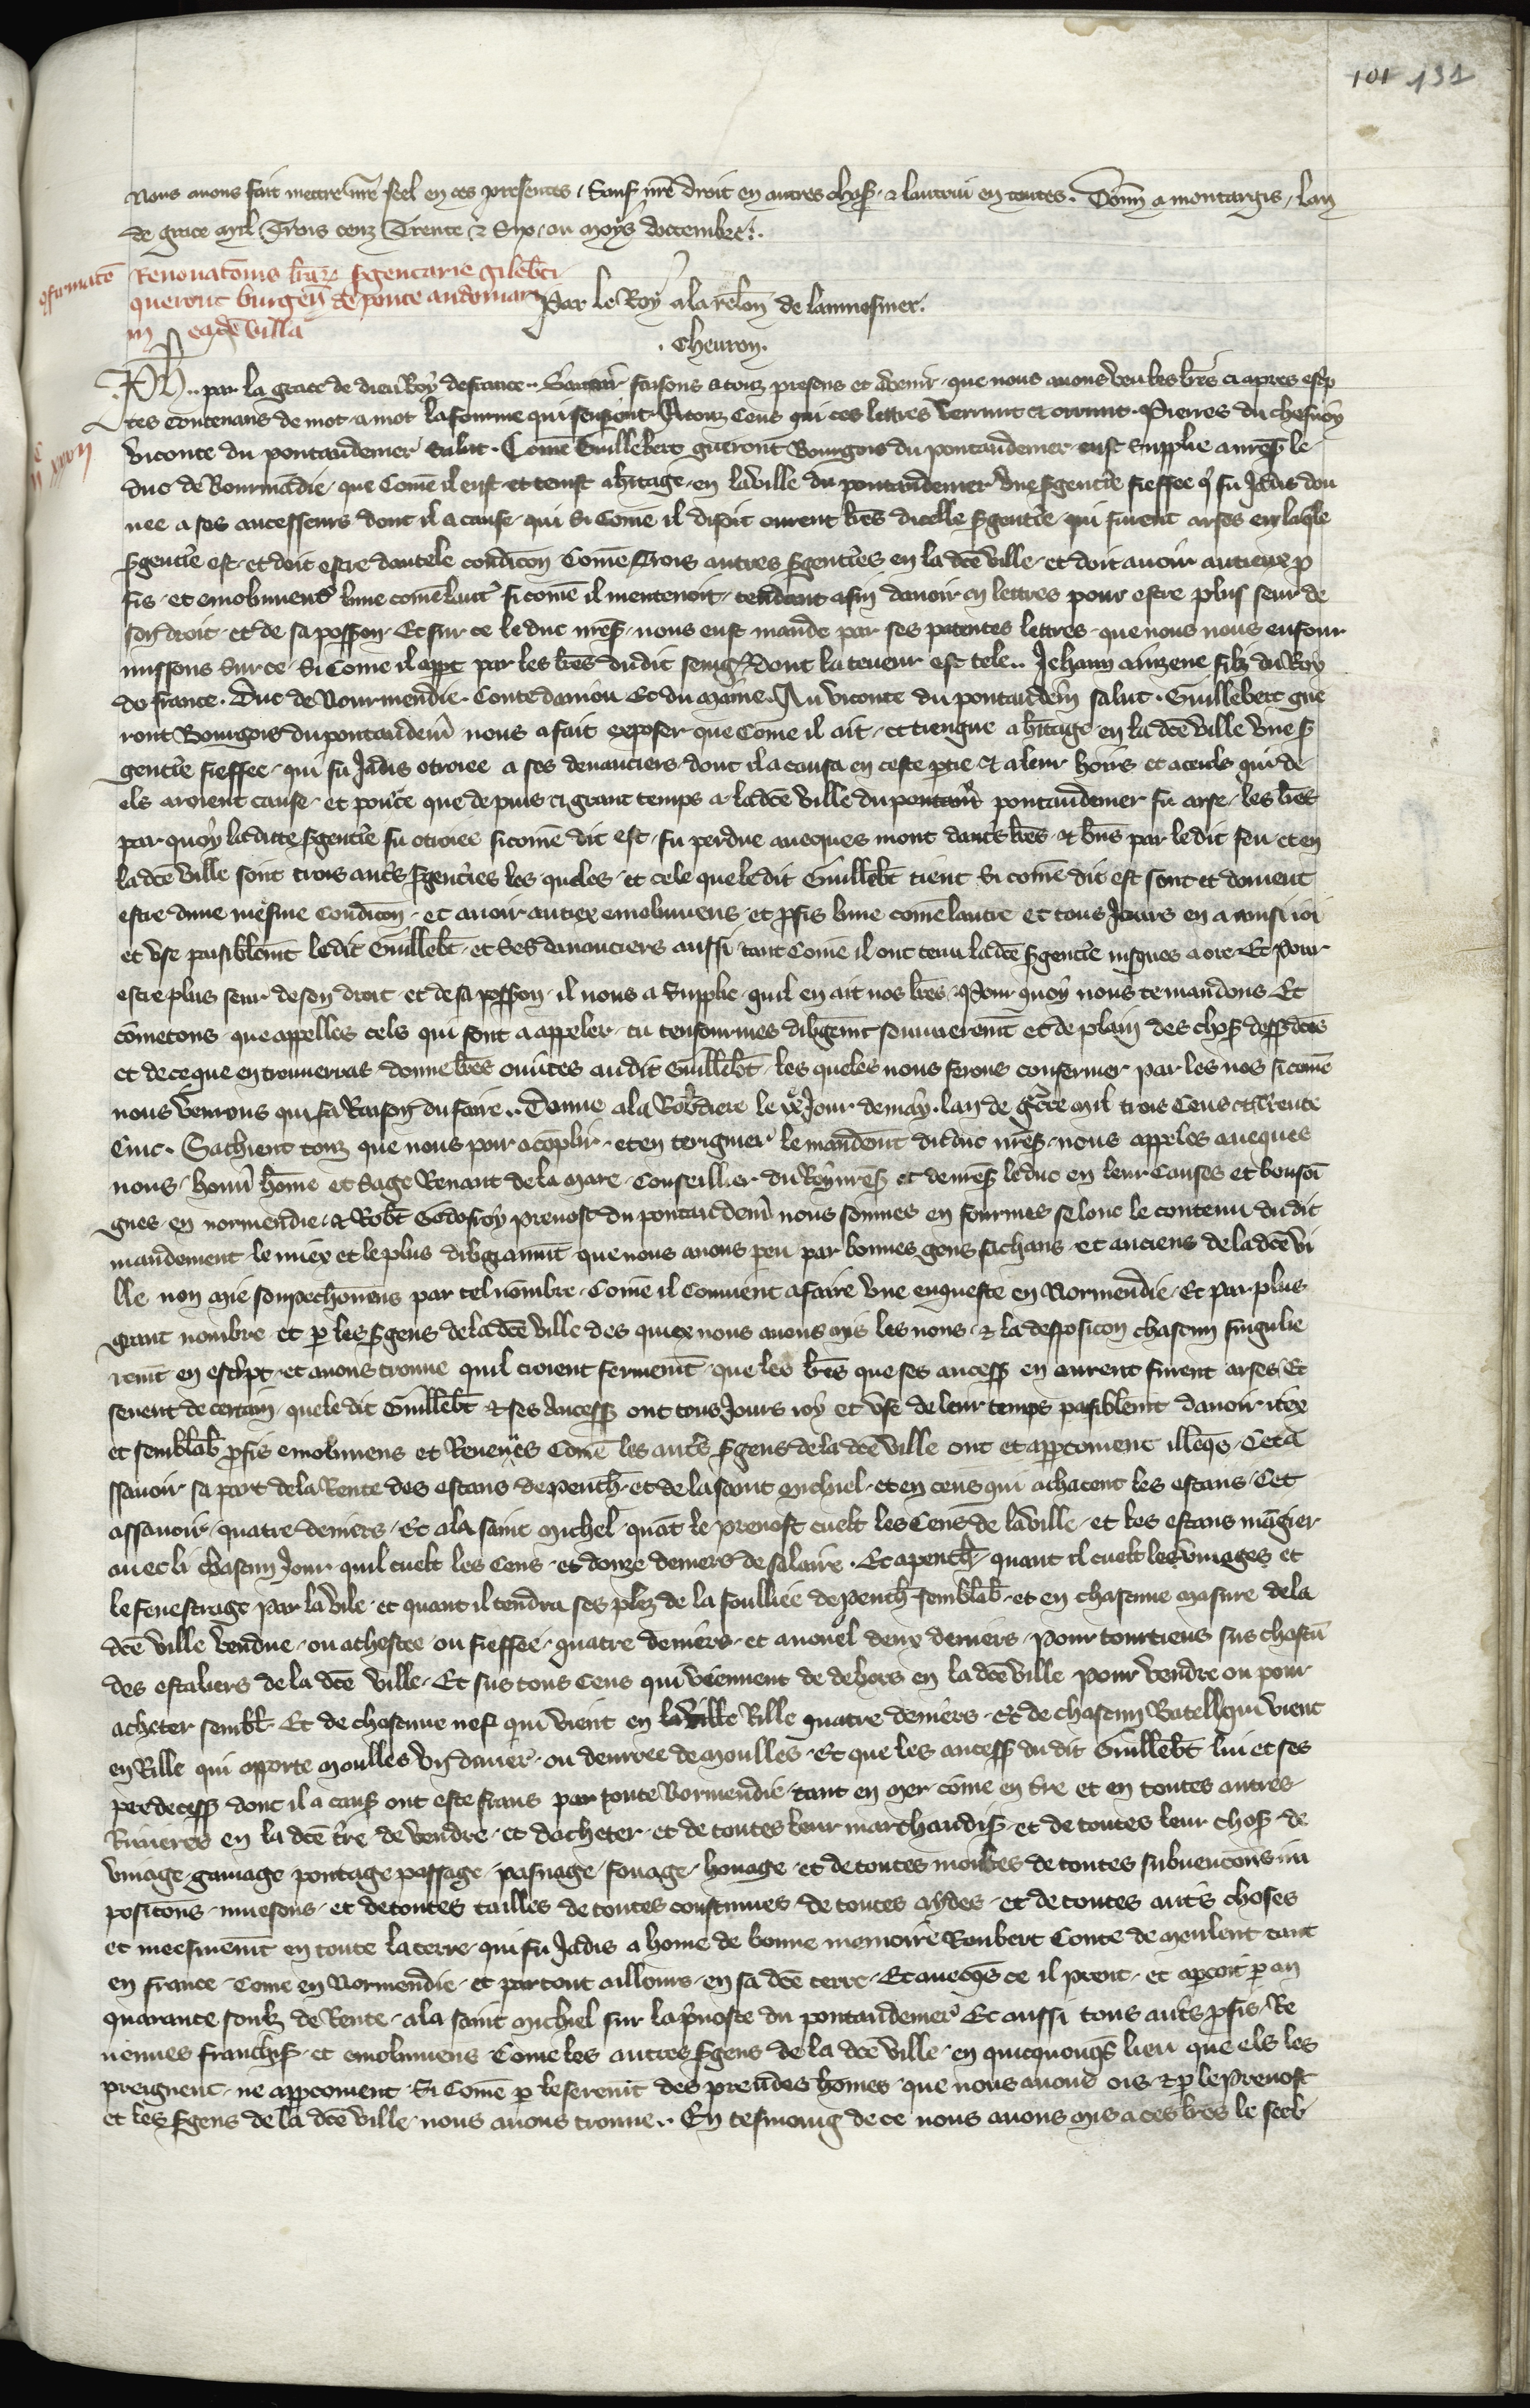 101 131
Nous avons fait mettre nr̄e seel en ces presentes, Sauf nr̄e droit en autres chos̄ & lautrui en toutes. Donn̄ a montargis, lan
de grace mil Trois cenz Trente & Six, ou moys doctembre.
9firmatō Renovatōnis lr̄ar̄ sgentarie gileb̄ti
queront burgen̄ de ponte audomari
in eadē villa
Par le Roy a la rel̄on de laumosnier.
. Chevron.
Ph̄ .. par la grace de dieu Roy de france .. Savoir faisons a touz presens et avenir, que nous avons veu les lr̄es ci apres escp̄
tes contenans de mot a mot la fourme qui sensuient. A touz Ceus qui ces lettres verrunt et orrunt. Pierres du chesnoy
viconte du pontaudemer Salut. Comē Guillebert gueront Bourgois du pontaudemer eust Supplie a nr̄es̄ le
duc de Nourmādie, que Comē il eust et tenist a hītage en la ville du pontaudemer une sgentīe fieffee q̄ fu Jadis don
nee a ses ancesseurs dont il a cause, qui Si Comē il disoit ourent lr̄es dicelle sgentīe qui furent arses en laqͤle
sgentīe est et doit estre dautele condicōn Comē Trois autres sgentīes en la dcē ville, et doit avoir autieux p̄
fis et emolumens lune comē lautͬ si comē il mentenoit, tendant a fin davoir en lettres pour estre plus seur de
son droit et de sa poss̄on. Et sur ce le duc nr̄es̄ nous eust mande par ses patentes lettres que nous nous enfour
missons Sur ce, Si Come il app̄t par les lr̄es dudit seinḡr dont la teneur est tele .. Jehann ainzene filz du Roy
de france. Duc de Nourmendie. Conte daniou Et du maine. Au viconte du pontaudem̄ salut. Guillebert gue
ront Bourgois du pontaudem̄ nous a fait exposer que Come il ait et tiengne a hītage en la dcē ville une s̄
gentīe fieffee, qui fu Jadis otroiee a ses devanciers dont il a causa en ceste p̄tie & a leur hoirs et a ceuls qui de
els aroient cause, et pour ce que depuis ci grant temps a la dcē ville du pontaudemer fu arse, les lr̄es
par quoy la ditte sgentīe fu otroiee si comē dit est, fu perdue avecques mout dautͬs lr̄es & bn̄s par le dit feu, et en
la dcē ville soint trois autͬs sgentīes les queles et cele que le dit Guilleb̄t tient Si comē dit est sont et doivent
estre dune mesme Condicōn et avoir autiex emolumens et p̄fis lune comē lautre et tous Jours en a ainsi ioi
et use paisiblem̄t le dit Guilleb̄t et Ses devanciers aussi, tant Comē il ont tenu la dcē sgentīe iusques a ore. Et Pour
estre plus seur de son droit et de sa poss̄on il nous a Supplie quil en ait nos lr̄es. Pour quoy nous te mandons Et
cōmetons que appelles cels qui sont a appeler, tu tenfourmes diligem̄t souvierem̄t et de plain des chos̄ dess̄ dcēs
et de ce que en trouverras donne lr̄es ouv̄tes au dit Guilleb̄t les queles nous ferons confermer par les nos si comē
nous verrons qui sa Raison du faire .. Donne a la Rob̄diere le xͤ Jour de may. lan de gͬce mil trois Cens et Trente
Cinc. Sachient touz que nous pour acoplir et en teriguier le mandem̄t du duc nr̄es̄ nous appeles aveques
nous hon̄ hōme et Sage Renaut de la Mare, Conseillier du Roy nr̄es̄ et de nr̄es̄ le duc en leur Causes et bensoi
gnes en normendie, & Rob̄t Godefroy prevost du pontaudem̄ nous sommes enfourmes selonc le contenu du dit
mandement, le miex et le plus diligiaum̄t que nous avons peu par bonnes gens sachans et anciens de la dcē vi
lle non mie souspechon̄ens par tel nombre Comē il Convient a faire une enqueste en Normendie, Et par plus
grant nombre et p̄ les sgens de la dcē ville des quiex nous avons mis les nons & la desposicōn chascun singulie
rem̄t en escp̄t, et avons trouve quil croient fermem̄t que les lr̄es que ses ancess̄ en eurent furent arses, Et
sevent de certain, que le dit Guilleb̄t & ses Ancess̄ ont tous Jours ioy et use de leur temps paisiblem̄t davoir itex
et semblab̄ p̄fis emolumens et Revenues Comē les autͬs sgens de la dcē ville ont et app̄coivent illeq̄s, Cet a
ssavoir sa part de la Rente des estaus de penth̄, et de la saint Michiel et en ceus qui achatent les estaus, Cet
assavoir quatre deniers, Et a la saint Michel quāt le prevost cuelt les Cens de la ville et les estaus mangier
avec li chascun Jour quil cuelt les Cens, et douze deniers de salaire. Et a penth̄, quant il cuelt les vinages et
le fenestrage par la vile, et quant il tendra ses plez de la foulliee de penth̄ semblab̄, et en chascune masure de la
dcē ville vendue, ou achestee ou fieffee, quatre deniers et a nouel deux deniers, pour tourtiens sus chascū
des estaliers de la dcē ville, Et sus tous Ceus qui viennent de dehors en la dcē ville pour vendre ou pour
acheter sembl̄. Et de chascune nef qui vient en la ville Rille quatre deniers, Et de chascun Batell qui vient
en Rille qui apporte moulles un dauer, ou denrree de moulles, Et que les ancess̄ du dit Guilleb̄t lui et ses
predecess̄ dont il a caus̄ ont este frans par toute Normendie, tant en mer cōme en tr̄e et en toutes autres
Rivieres en la dcē tr̄e de vendre et dacheter et de toutes leur marchandis̄ et de toutes leur chos̄ de
vinage gaiage pontage passage, pasnage, fouage, houage et de toutes moutes de toutes subvencōns im
posicōns, muesons, et de toutes tailles de toutes coustumes de toutes aydes et de toutes autͬs choses
et meesmem̄t en toute la terre qui fu Jadis a home de bonne memoire Roubert Conte de Meulent tant
en france Come en Normendie et partout aillours en sa dcē terre. Et avecq̄s ce il prent et ap̄coit p̄ an
quarante soulz de Rente a la saint Michiel sur la p̄voste du pontaudemer. Et aussi tous autͬs p̄fis, Re
venues franchis̄ et emolumens Come les autres sgens de la dcē ville en quicquonq̄s lieu que els les
preignent, ne app̄coivent Si Comē p̄ le serem̄t des preudes homes que nous avons ois & p̄ le prevost
et les sgens de la dcē ville nous avons trouve .. En tesmoing de ce nous avons mis a ces lr̄es le seel